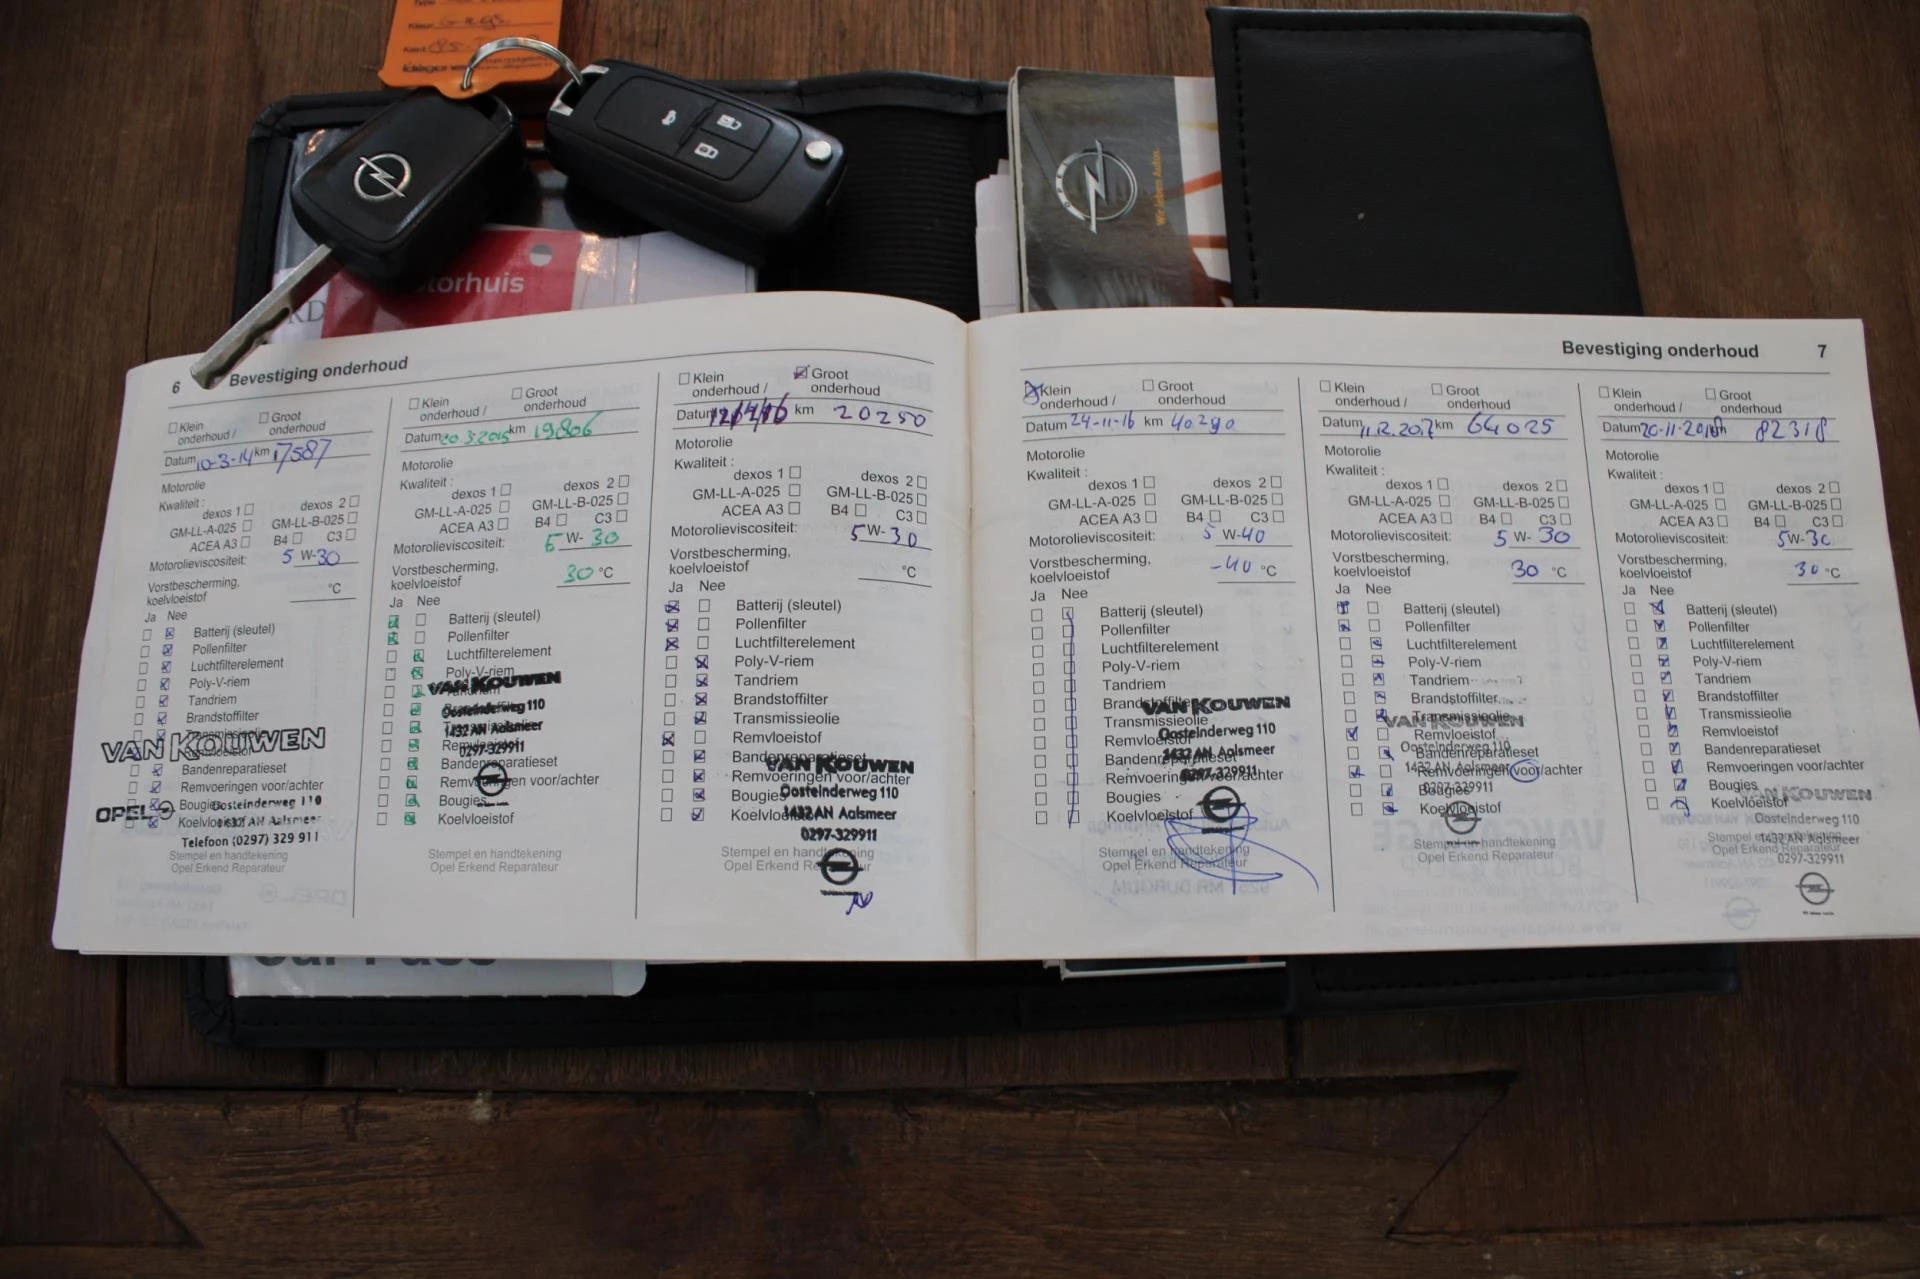 Wir leben Autos.
torhuis
RD
6 Bevestiging onderhoud
☐ Klein onderhoud / ☐ Groot onderhoud
Datum 10-3-14 km 17587
Motorolie
Kwaliteit :
dexos 1 ☐ dexos 2 ☐
GM-LL-A-025 ☐ GM-LL-B-025 ☐
ACEA A3 ☐ B4 ☐ C3 ☐
Motorolieviscositeit: 5 W-30
Vorstbescherming,
koelvloeistof °C
Ja Nee
Batterij (sleutel)
Pollenfilter
Luchtfilterelement
Poly-V-riem
Tandriem
Brandstoffilter
Transmissieolie
VAN KOUWEN
Bandenreparatieset
Remvoeringen voor/achter
Bougies
OPEL Oosteinderweg 110
Koelvloeistof 1432 AN Aalsmeer
Telefoon (0297) 329 911
Stempel en handtekening
Opel Erkend Reparateur
☐ Klein onderhoud / ☐ Groot onderhoud
Datum 20.3.2015 km 19806
Motorolie
Kwaliteit :
dexos 1 ☐ dexos 2 ☐
GM-LL-A-025 ☐ GM-LL-B-025 ☐
ACEA A3 ☐ B4 ☐ C3 ☐
Motorolieviscositeit: 5 W- 30
Vorstbescherming,
koelvloeistof 30 °C
Ja Nee
Batterij (sleutel)
Pollenfilter
Luchtfilterelement
Poly-V-riem
Tandriem
VAN KOUWEN
Brandstoffilter
Oosteinderweg 110
Transmissieolie
1432 AN Aalsmeer
Remvloeistof
0297-329911
Bandenreparatieset
Remvoeringen voor/achter
Bougies
Koelvloeistof
Stempel en handtekening
Opel Erkend Reparateur
☐ Klein onderhoud / ☒ Groot onderhoud
Datum km 20250
Motorolie
Kwaliteit :
dexos 1 ☐ dexos 2 ☐
GM-LL-A-025 ☐ GM-LL-B-025 ☐
ACEA A3 ☐ B4 ☐ C3 ☐
Motorolieviscositeit: 5 W-30
Vorstbescherming,
koelvloeistof °C
Ja Nee
Batterij (sleutel)
Pollenfilter
Luchtfilterelement
Poly-V-riem
Tandriem
Brandstoffilter
Transmissieolie
Remvloeistof
Bandenreparatieset
VAN KOUWEN
Remvoeringen voor/achter
Bougies Oosteinderweg 110
Koelvloeistof 1432 AN Aalsmeer
0297-329911
Stempel en handtekening
Opel Erkend Reparateur
Bevestiging onderhoud 7
☒ Klein onderhoud / ☐ Groot onderhoud
Datum 24-11-16 km 40290
Motorolie
Kwaliteit :
dexos 1 ☐ dexos 2 ☐
GM-LL-A-025 ☐ GM-LL-B-025 ☐
ACEA A3 ☐ B4 ☐ C3 ☐
Motorolieviscositeit: 5 W-40
Vorstbescherming,
koelvloeistof -40 °C
Ja Nee
Batterij (sleutel)
Pollenfilter
Luchtfilterelement
Poly-V-riem
Tandriem
Brandstoffilter
VAN KOUWEN
Transmissieolie
Oosteinderweg 110
Remvloeistof
1432 AN Aalsmeer
Bandenreparatieset
0297-329911
Remvoeringen voor/achter
Bougies
Koelvloeistof
Stempel en handtekening
Opel Erkend Reparateur
☐ Klein onderhoud / ☐ Groot onderhoud
Datum 11.12.2017 km 64025
Motorolie
Kwaliteit :
dexos 1 ☐ dexos 2 ☐
GM-LL-A-025 ☐ GM-LL-B-025 ☐
ACEA A3 ☐ B4 ☐ C3 ☐
Motorolieviscositeit: 5 W- 30
Vorstbescherming,
koelvloeistof 30 °C
Ja Nee
Batterij (sleutel)
Pollenfilter
Luchtfilterelement
Poly-V-riem
Tandriem
Brandstoffilter
Transmissieolie
VAN KOUWEN
Remvloeistof
Oosteinderweg 110
Bandenreparatieset
1432 AN Aalsmeer
Remvoeringen voor/achter
0297-329911
Bougies
Koelvloeistof
Stempel en handtekening
Opel Erkend Reparateur
☐ Klein onderhoud / ☐ Groot onderhoud
Datum 20-11-2018 km 82318
Motorolie
Kwaliteit :
dexos 1 ☐ dexos 2 ☐
GM-LL-A-025 ☐ GM-LL-B-025 ☐
ACEA A3 ☐ B4 ☐ C3 ☐
Motorolieviscositeit: 5 W-30
Vorstbescherming,
koelvloeistof 30 °C
Ja Nee
Batterij (sleutel)
Pollenfilter
Luchtfilterelement
Poly-V-riem
Tandriem
Brandstoffilter
Transmissieolie
Remvloeistof
Bandenreparatieset
Remvoeringen voor/achter
Bougies
VAN KOUWEN
Koelvloeistof
Oosteinderweg 110
Stempel en handtekening
1432 AN Aalsmeer
Opel Erkend Reparateur
0297-329911